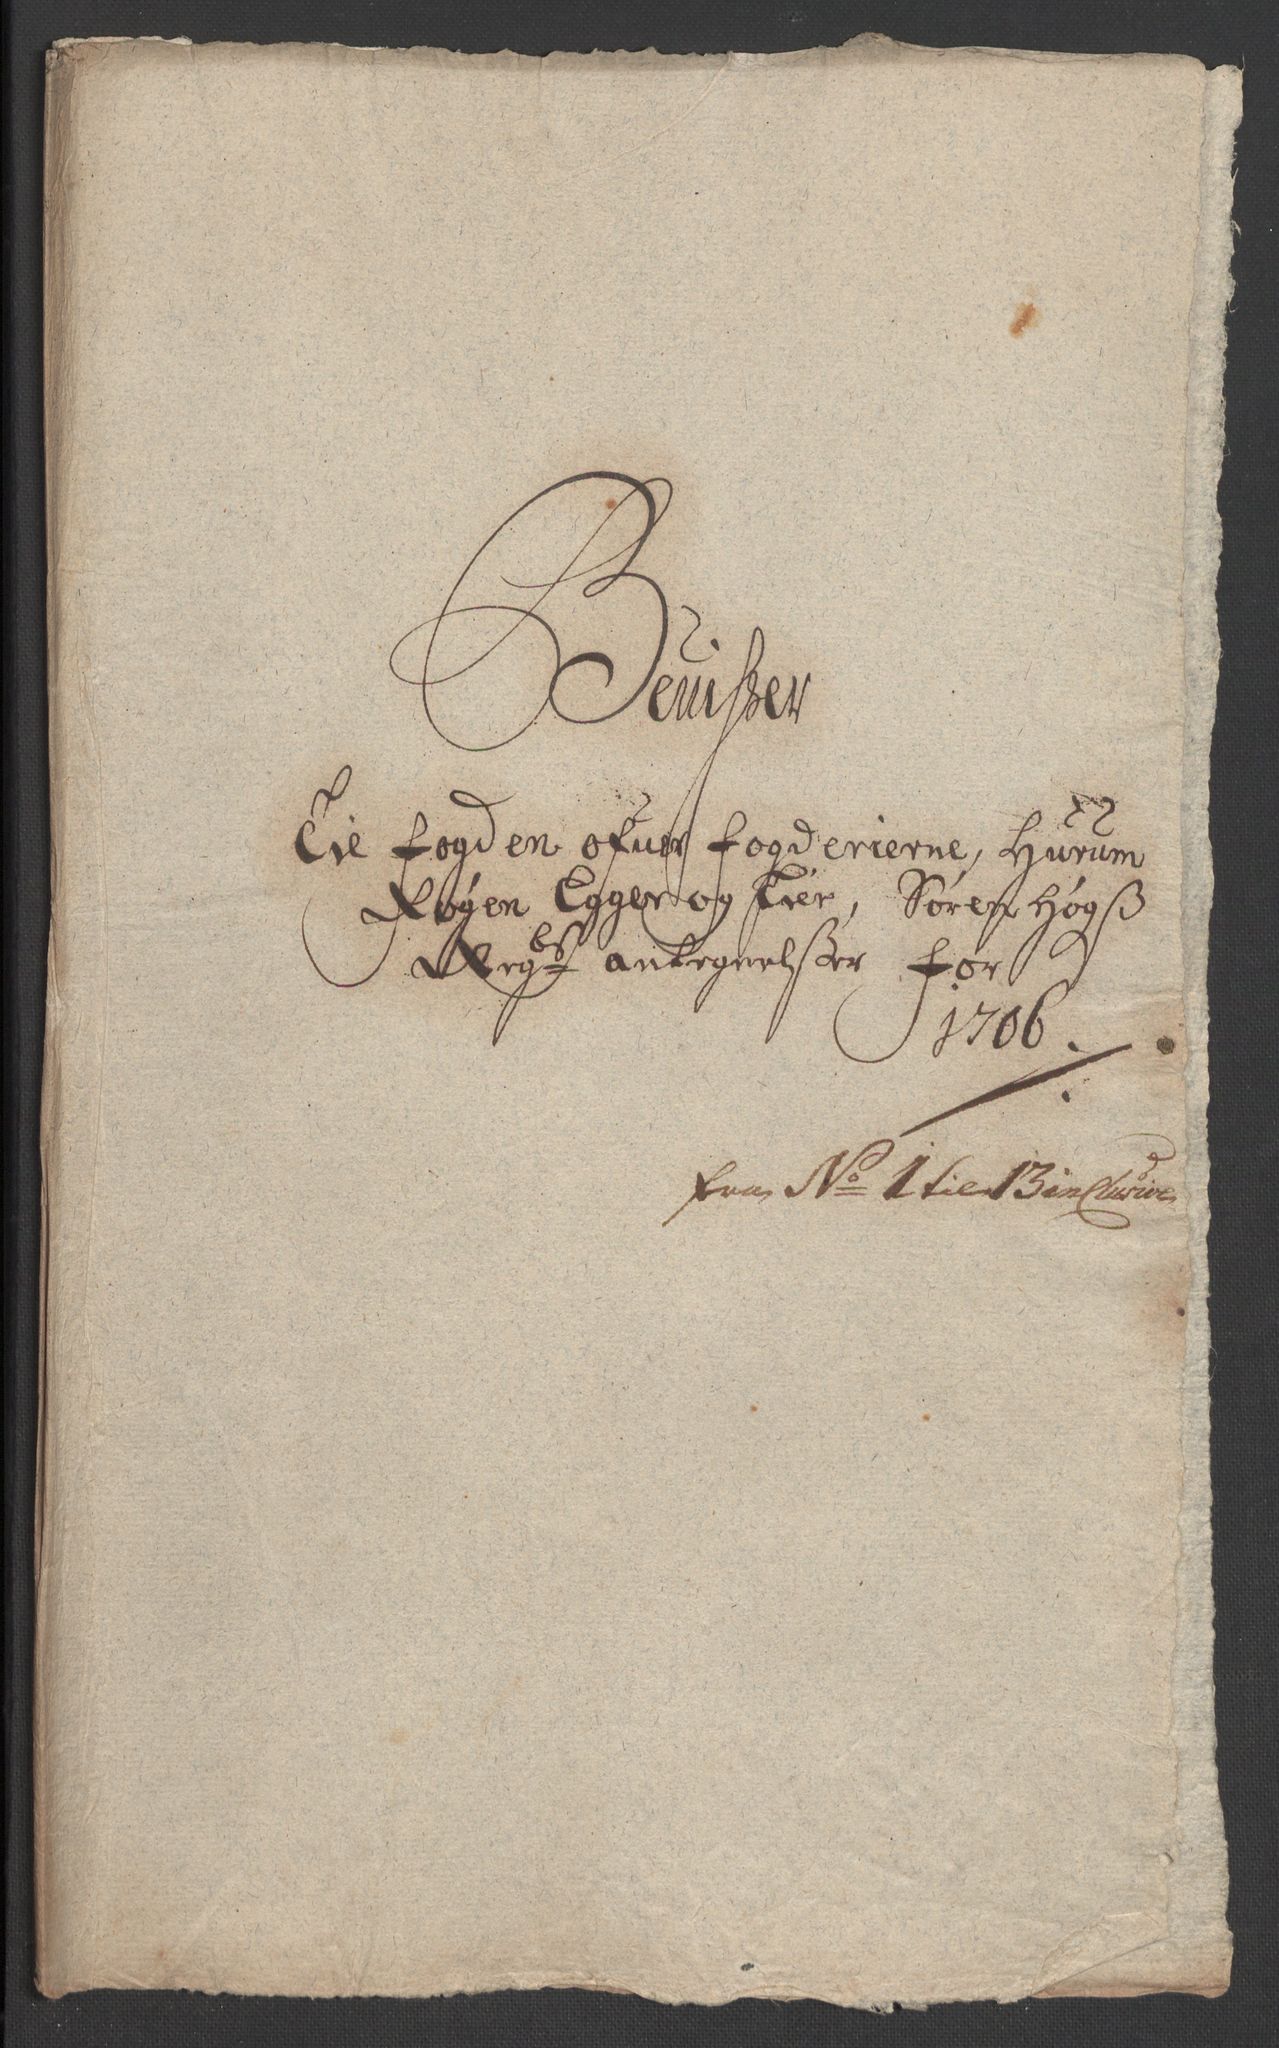 Beuiszer
Til fogden ofuer fogderierne, Hurum
Røgen Egger og Lier, Søren Høgsz
Regbs antegnelszer for
1706.
fra No 1 til 13 inclusive